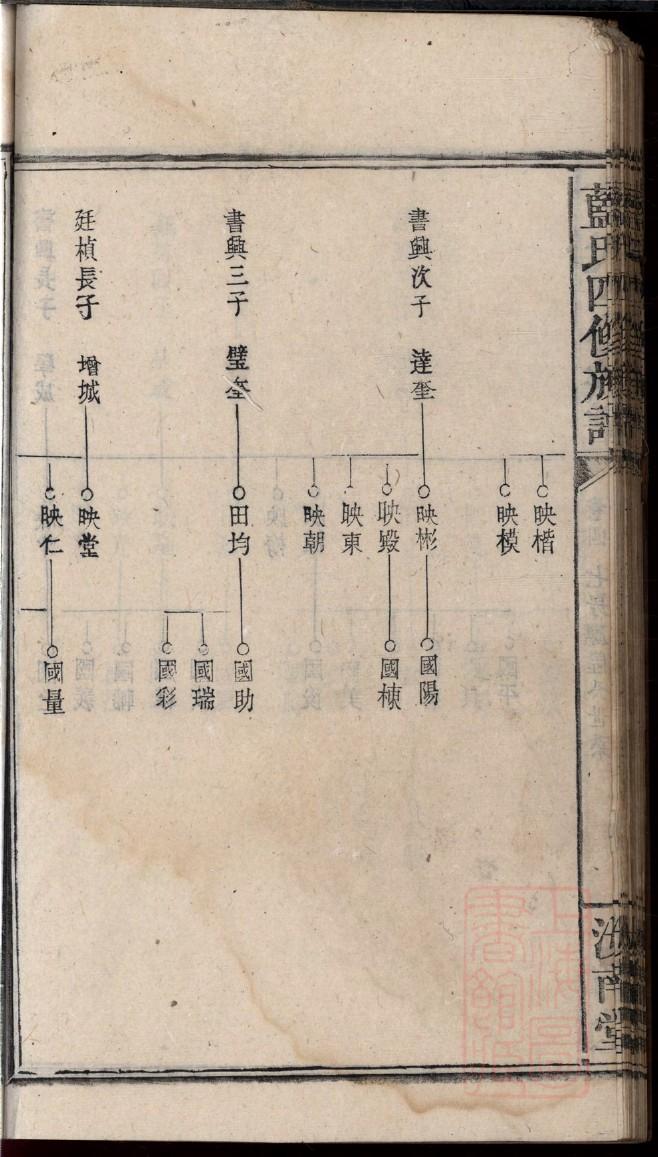 藍氏四修族譜
汝南堂
映楷
映模
書興次子 達奎
映彬
國陽
映毀
國棟
映東
映朝
書興三子 璧奎
田均
國助
國瑞
國彩
廷楨長子 增城
映堂
映仁
國量